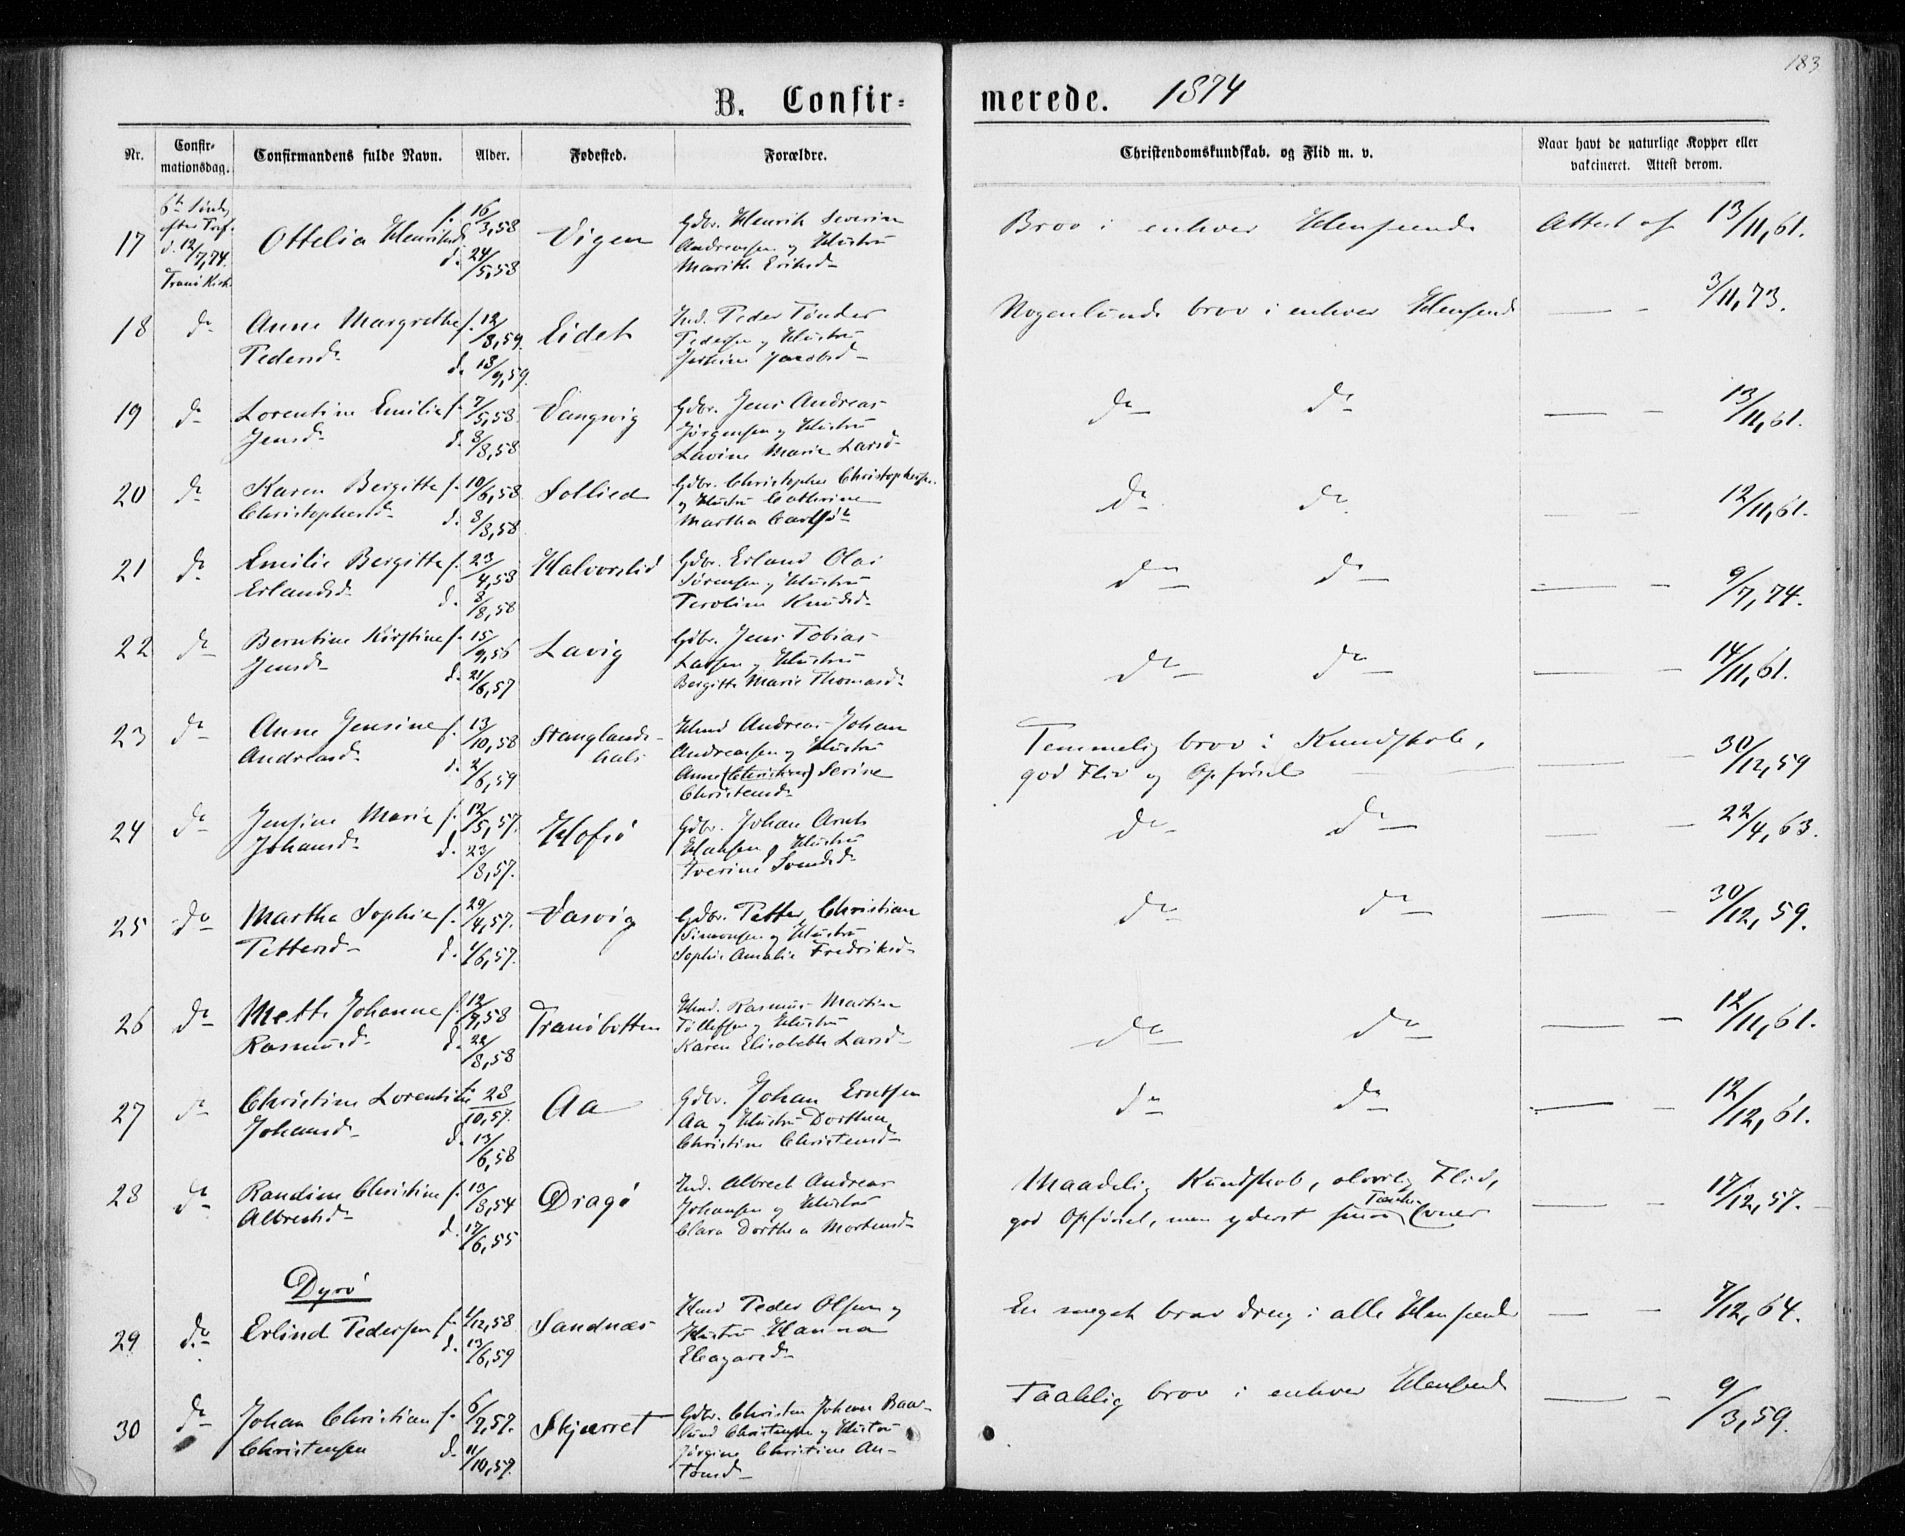 183
B. Confir-
merede. 1874
Nr.
Confir-
mationsdag.
Confirmandens fulde Navn.
Alder.
Fødested.
Forældre.
Christendomskundskab. og Flid m. v.
Naar havt de naturlige Kopper eller
vakcineret. Attest derom.
17
6te Sønd.
efter Tref.
d. 12/7,74.
Tranø Kirk.
Ottelia Henriksd.
f. 16/3,58
d. 24/5,58
Vigen
Gdbr. Henrik Severin
Andreassen og Hustru
Marith Eriksd-
Brav i enhver Henseende
Attest af 13/11,61.
18
do
Anne Margrethe
Pedersd-
f. 12/8,59.
d. 18/9,59.
Eidet
Ind. Peder Tønder
Pedersen og Hustru
Jacobsd-
Nogenlunde brav i enhver Henseend
— - 3/11,73.
19
do
Lorentine Emilie
Jensd-
f. 7/5,58
d. 8/8,58
Vangsvig
Gdbr. Jens Andreas
Jørgensen og Hustru
Lavine Marie Larsd-
do do
— - 13/11,61.
20
do
Karen Bergitte
Christophersd-
f. 10/6,58
d. 8/8,58
Sollied
Gdbr. Christopher Christophersen
og Hustru Cathrine
Martha
do do
— - 12/11,61.
21
do
Emilie Bergitte
Erlandsd-
f. 23/4,58
d. 8/8,58
Halvorslid
Gdbr. Erland Olai
Sørensen og Hustru
Peroline Knudsd-
do do
— - 9/7,74.
22
do
Berntine Kirstine
Jensd-
f. 15/9,56
d. 21/6,57
Lavig
Gdbr. Jens Tobias
Larsen og Hustru
Bergitte Marie Thomasd-
do do
— - 14/11,61.
23
do
Anne Jensine
Andreasd-
f. 13/10,58
d. 2/6,59
Stanglands-
hals
Hmd Andreas Johan
Andreassen og Hustru
Anne (Christine) Serine
Christensd-
Temmelig brav i Kundskab,
god Flid og Opførsel
— - 30/12,59
24
do
Jensine Marie
Johansd-
f. 12/5,57.
d. 23/8,57.
Hofsø
Gdbr. Johan Arnt
Hansen og Hustru
Iverine Svendsd-
do do
— - 22/4,63.
25
do
Martha Sophie
Pettersd-
f. 29/4,57.
d. 1/6,57.
Vasvig
Gdbr. Petter Christian
Simonsen og Hustru
Sophie Amalie Fredriksd-
do do
— - 30/12,59.
26
do
Mette Johanne
Rasmusd-
f. 12/7,58
d. 22/8,58
Tranøbotten
Hmd. Rasmus Martin
Tollefsen og Hustru
Karen Elisabeth Larsd-
do do
— - 12/11,61.
27
do
Christine Lorentine
Johansd-
f. 28/10,57.
d. 13/6,58
Aa
Gdbr. Johan Erntsen
Aa og Hustru Dorthea
Christine Christensd-
do do
— - 12/12,61.
28
do
Randine Christine
Albrechtsd-
f. 13/8,54
d. 17/6,55
Dragø
Ind. Albrect Andreas
Johansen og Hustru
Clara Dorthea Mortensd-
Maadelig Kundskab, alvorlig Flid,
god Opførsel, men yderst smaa Tanke Evner
— - 17/12,57.
Dyrø
29
do
Erlind Pedersen
f. 1/12,58
d. 13/6,59
Sandnæs
Hmd Peder Olsen og
Hustru Hanna
Eleazarsd-
En meget brav dreng i alle Henseende
— - 7/12,64.
30
do
Johan Christian
Christensen
f. 6/7,57.
d. 11/10,57.
Skjærret
Gdbr. Christen Johan Baar-
lund Christensen og Hustru
Jørgine Christine An-
tonsd-
Taalelig brav i enhver Henseend
— - 9/3,59.